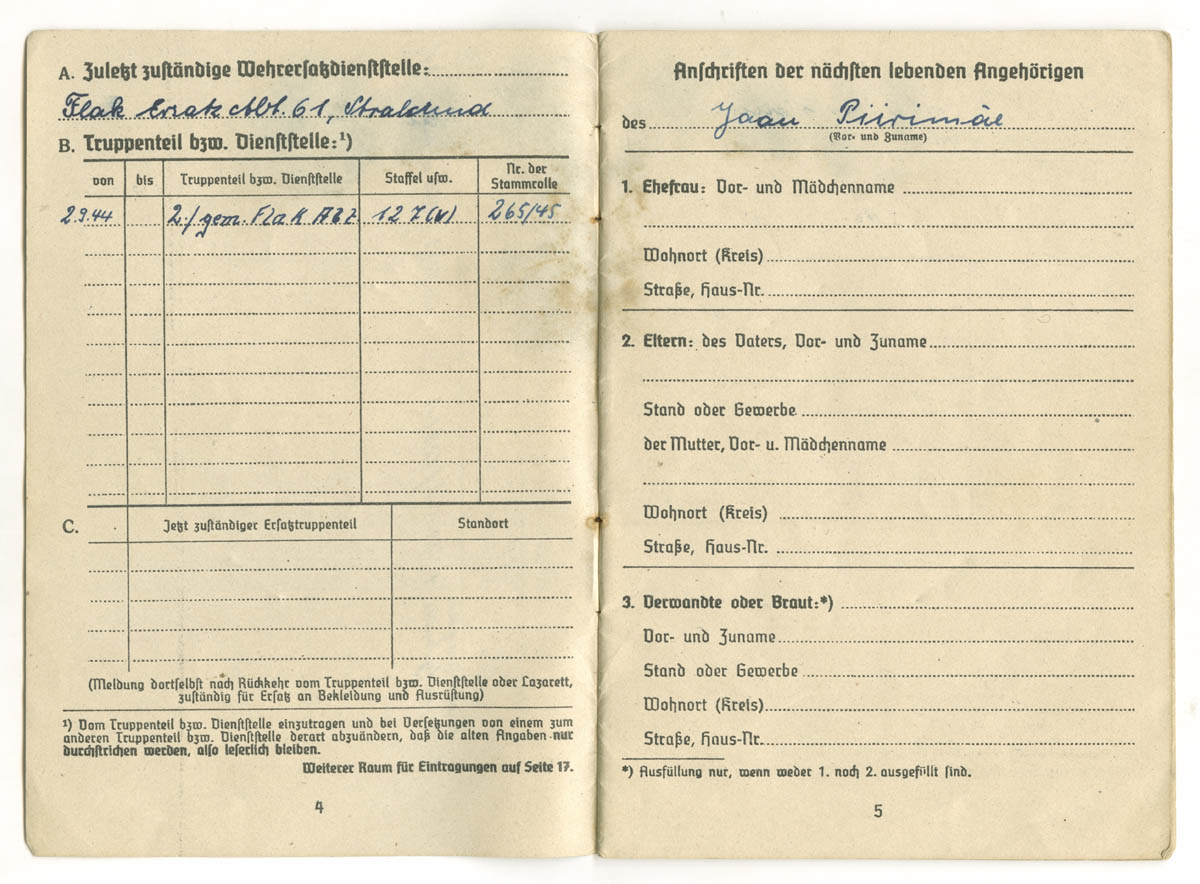 A. Zuletzt zuständige Wehrersatzdienststelle:
Flak Ersatz Abt. 61, Stralsund
B. Truppenteil bzw. Dienststelle:¹)
von bis Truppenteil bzw. Dienststelle Staffel usw. Nr. der Stammrolle
2.9.44 2./ gem. Flak Abt 127(v) 265/45
C. Jetzt zuständiger Ersatztruppenteil Standort
(Meldung dortselbst nach Rückkehr vom Truppenteil bzw. Dienststelle oder Lazarett,
zuständig für Ersatz an Bekleidung und Ausrüstung)
¹) Vom Truppenteil bzw. Dienststelle einzutragen und bei Versetzungen von einem zum
anderen Truppenteil bzw. Dienststelle derart abzuändern, daß die alten Angaben nur
durchstrichen werden, also leserlich bleiben.
Weiterer Raum für Eintragungen auf Seite 17.
4
Anschriften der nächsten lebenden Angehörigen
des Jaan Piirimäe
(Vor- und Zuname)
1. Ehefrau: Vor- und Mädchenname
Wohnort (Kreis)
Straße, Haus-Nr.
2. Eltern: des Vaters, Vor- und Zuname
Stand oder Gewerbe
der Mutter, Vor- u. Mädchenname
Wohnort (Kreis)
Straße, Haus-Nr.
3. Verwandte oder Braut:*)
Vor- und Zuname
Stand oder Gewerbe
Wohnort (Kreis)
Straße, Haus-Nr.
*) Ausfüllung nur, wenn weder 1. noch 2. ausgefüllt sind.
5